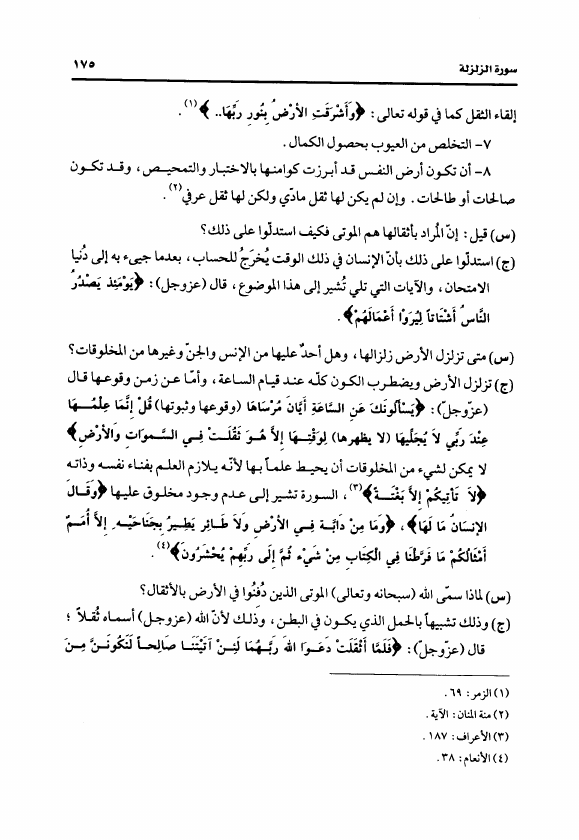 سورة الزلزلة ١٧٥
إلقاء الثقل كما في قوله تعالى: ﴿وَأَشْرَقَتِ الأَرْضُ بِنُورِ رَبِّهَا..﴾(١).
٧- التخلص من العيوب بحصول الكمال.
٨- أن تكون أرض النفس قد أبرزت كوامنها بالاختبار والتمحيص، وقد تكون
صالحات أو طالحات. وإن لم يكن لها ثقل مادّي ولكن لها ثقل عرفي(٢).
(س) قيل: إنّ المُراد بأثقالها هم الموتى فكيف استدلّوا على ذلك؟
(ج) استدلّوا على ذلك بأنّ الإنسان في ذلك الوقت يُخرَجُ للحساب، بعدما جيىء به إلى دُنيا
الامتحان، والآيات التي تلي تُشير إلى هذا الموضوع، قال (عزوجل): ﴿يَوْمَئِذٍ يَصْدُرُ
النَّاسُ أَشْتَاتاً لِيُرَوْا أَعْمَالَهُمْ﴾.
(س) متى تزلزل الأرض زلزالها، وهل أحدٌ عليها من الإنس والجنّ وغيرها من المخلوقات؟
(ج) تزلزل الأرض ويضطرب الكون كلّه عند قيام الساعة، وأمّا عن زمن وقوعها قال
(عزّوجل): ﴿يَسْأَلُونَكَ عَنِ السَّاعَةِ أَيَّانَ مُرْسَاهَا (وقوعها وثبوتها) قُلْ إِنَّمَا عِلْمُهَا
عِنْدَ رَبِّي لاَ يُجَلِّيهَا (لا يظهرها) لِوَقْتِهَا إِلاَّ هُوَ ثَقُلَتْ فِي السَّموَاتِ وَالأَرْضِ﴾
لا يمكن لشيء من المخلوقات أن يحيط علماً بها لأنّه يلازم العلم بفناء نفسه وذاته
﴿لاَ تَأْتِيكُمْ إِلاَّ بَغْتَةً﴾(٣)، السورة تشير إلى عدم وجود مخلوق عليها ﴿وَقَالَ
الإِنسَانُ مَا لَهَا﴾، ﴿وَمَا مِن دَابَّةٍ فِي الأَرْضِ وَلاَ طَائِرٍ يَطِيرُ بِجَنَاحَيْهِ إِلاَّ أُمَمٌ
أَمْثَالُكُمْ مَا فَرَّطْنَا فِي الْكِتَابِ مِنْ شَيْءٍ ثُمَّ إِلَى رَبِّهِمْ يُحْشَرُونَ﴾(٤).
(س) لماذا سمّى الله (سبحانه وتعالى) الموتى الذين دُفنُوا في الأرض بالأثقال؟
(ج) وذلك تشبيهاً بالحمل الذي يكون في البطن، وذلك لأنّ الله (عزوجل) أسماه ثُقلاً؛
قال (عزّوجلّ): ﴿فَلَمَّا أَثْقَلَتْ دَعَوَا اللهَ رَبَّهُمَا لَئِنْ آتَيْتَنَا صَالِحاً لَنَكُونَنَّ مِنَ
(١) الزمر: ٦٩.
(٢) منة المنان: الآية.
(٣) الأعراف: ١٨٧.
(٤) الأنعام: ٣٨.